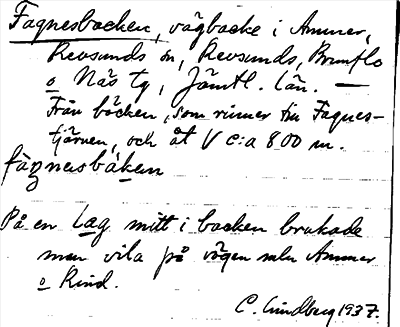 Fagnesbacken, vägbacke i Ammer,
Revsunds sn, Revsunds, Brunflo
o Näs tg, Jämtl. län. —
Från bäcken, som rinner till Fagnes-
tjärnen, och åt V c:a 800 m.
På en lag mitt i backen brukade
man vila på vägen mln Ammer
o Rind.
C. Lindberg 1937.